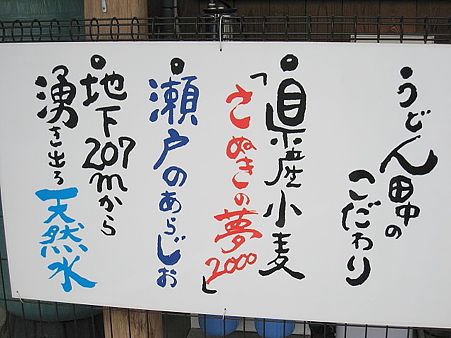 うどん田中の
こだわり
●県産小麦
「さぬきの夢2000」
●瀬戸のあらじお
●地下207mから
湧き出る天然水